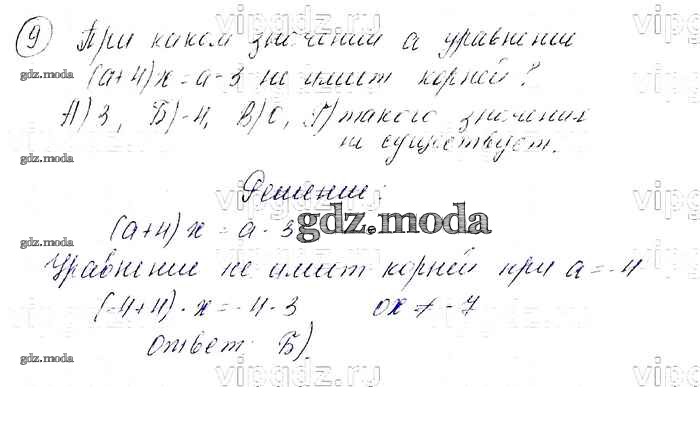 vipgdz.ru
9 При каком значении а уравнение
gdz.moda
(а+4)х=а-3 не имеет корней?
А) 3, Б) -4, В) 0, Г) такого значения
не существует.
gdz.moda
Решение:
vipgdz.ru
(а+4)х = а-3
gdz.moda
gdz.moda
Уравнение не имеет корней при а=-4
(-4+4)·х=-4-3 0х ≠ -7
Ответ: Б).
gdz.moda
vipgdz.ru
vipgdz.ru